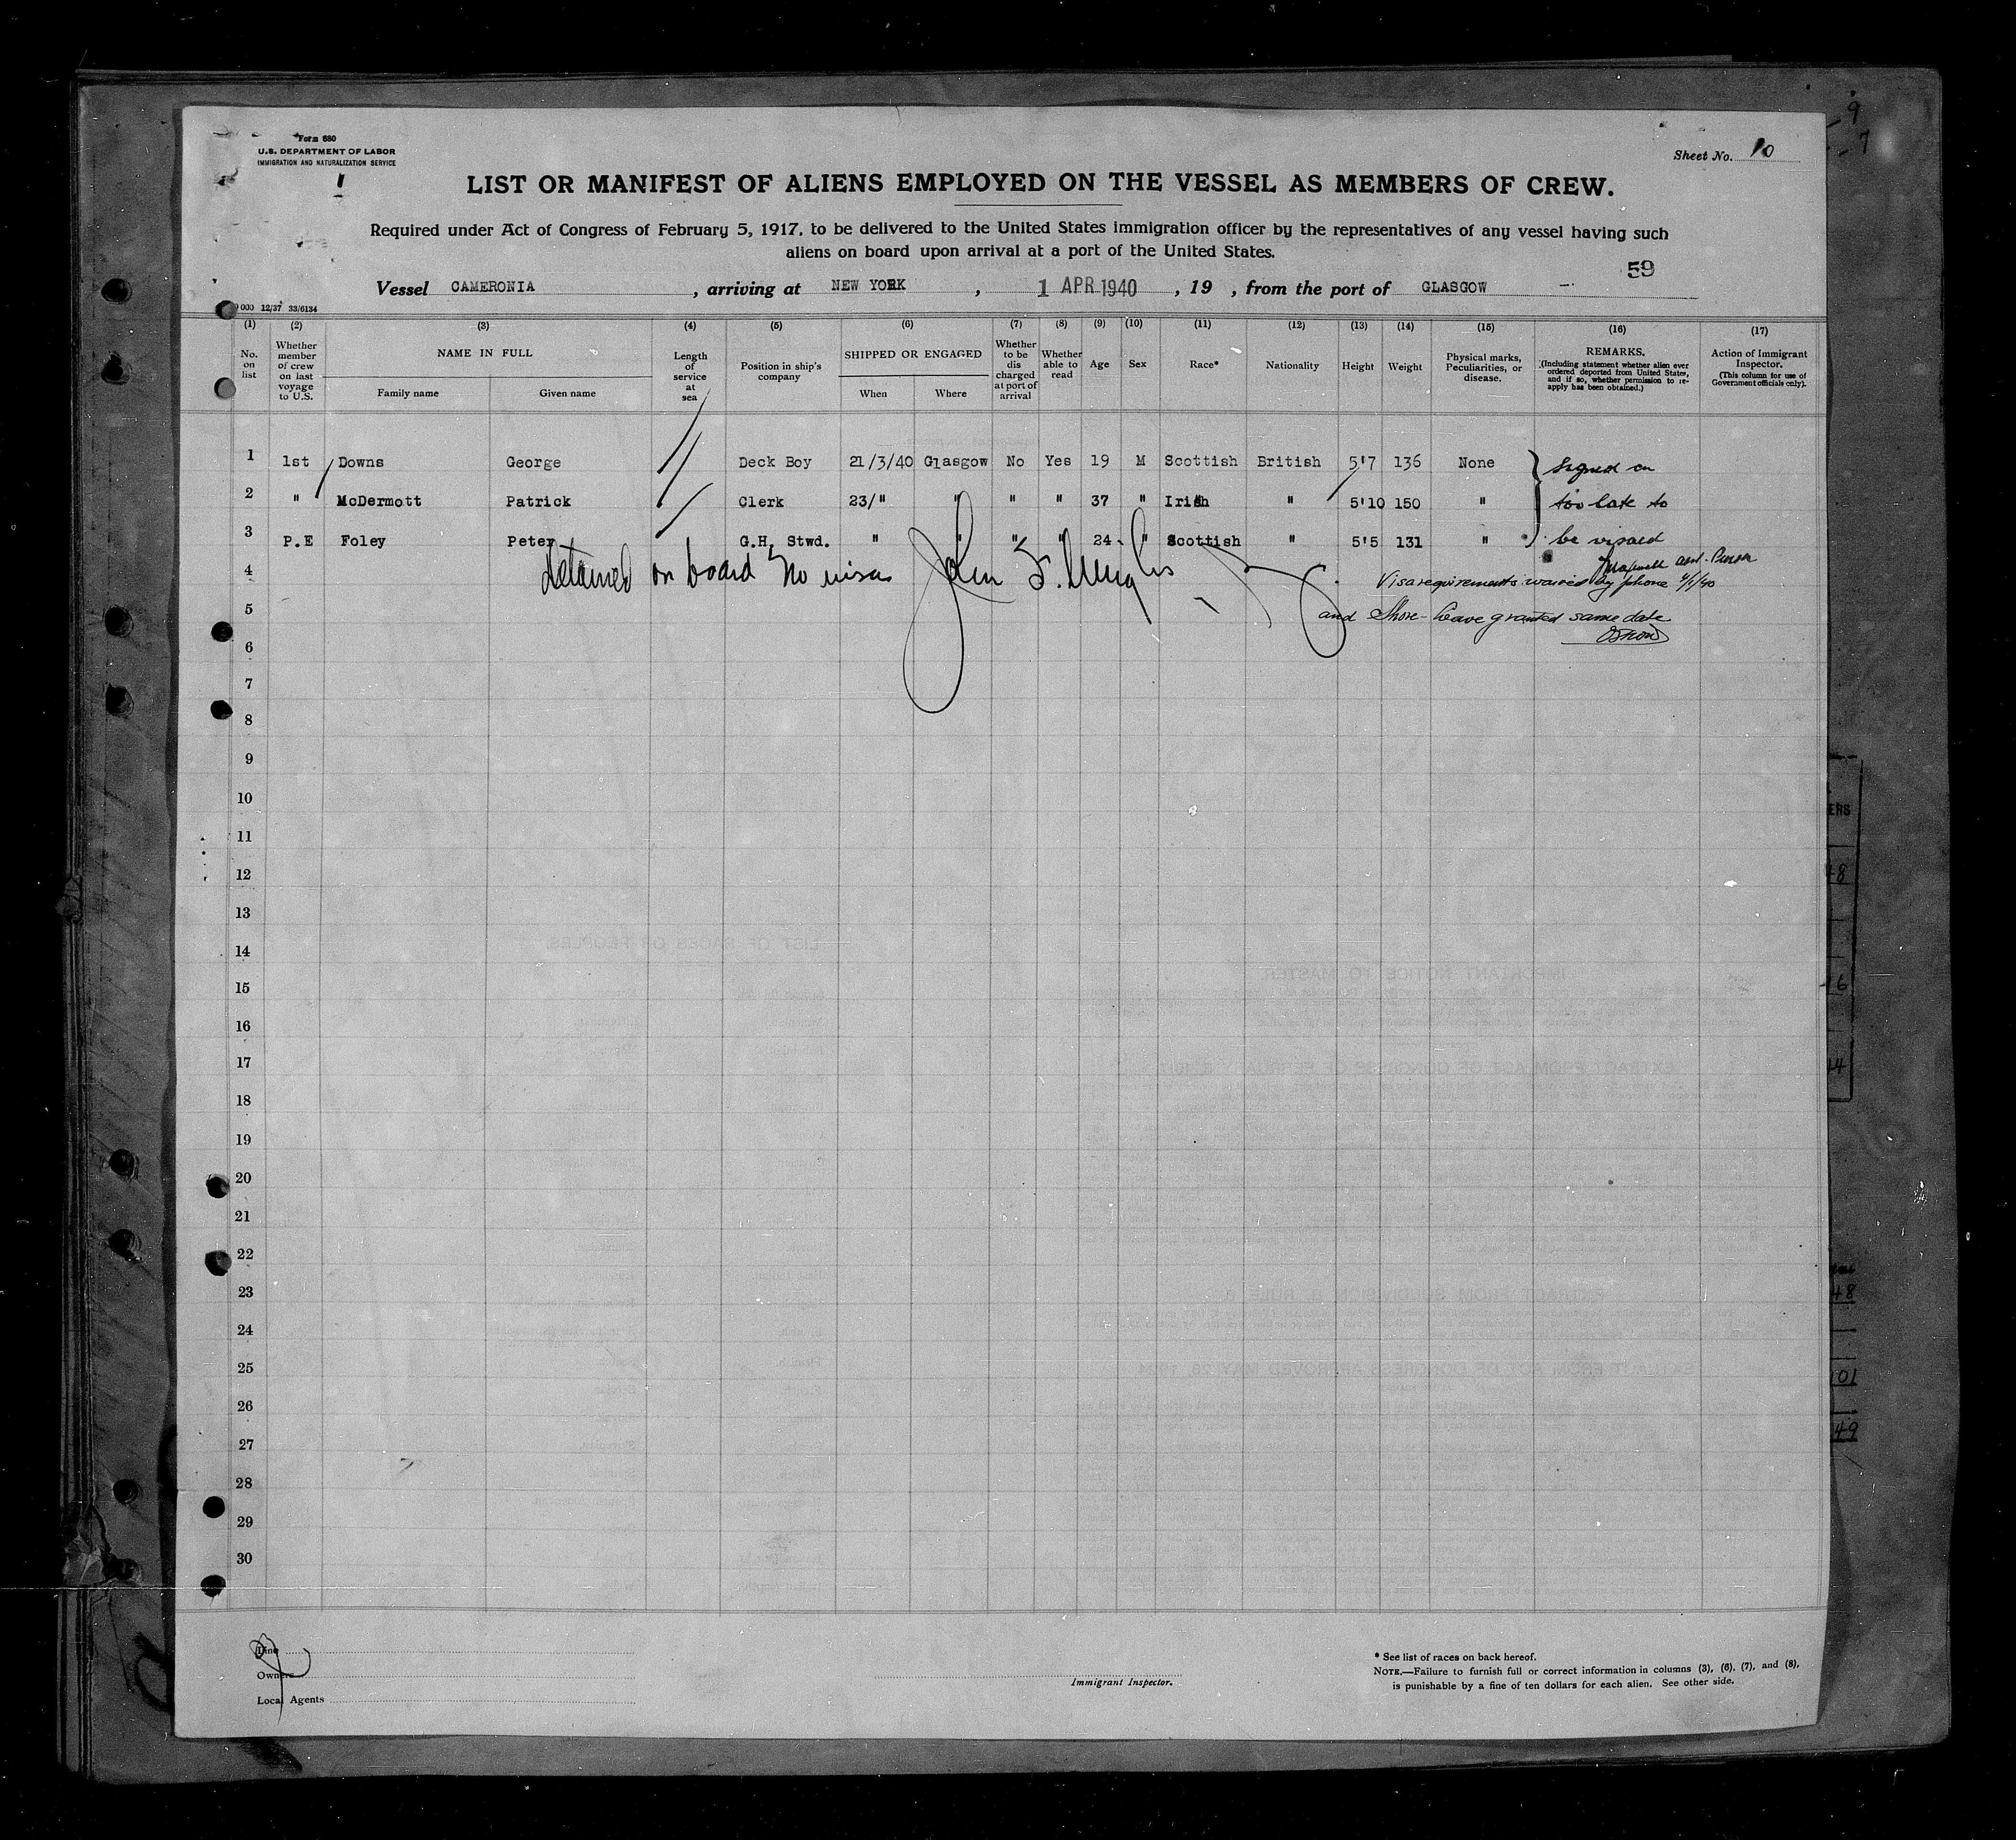 Form 680
U.S. DEPARTMENT OF LABOR
IMMIGRATION AND NATURALIZATION SERVICE
Sheet No. 10
LIST OR MANIFEST OF ALIENS EMPLOYED ON THE VESSEL AS MEMBERS OF CREW.
Required under Act of Congress of February 5, 1917, to be delivered to the United States immigration officer by the representatives of any vessel having such
aliens on board upon arrival at a port of the United States.
59
Vessel CAMERONIA, arriving at NEW YORK, 1 APR 1940, 19 , from the port of GLASGOW
000 12/37 33/6134
(1) (2) (3) (4) (5) (6) (7) (8) (9) (10) (11) (12) (13) (14) (15) (16) (17)
No. on list
Whether member of crew on last voyage to U.S.
NAME IN FULL
Family name
Given name
Length of service at sea
Position in ship's company
SHIPPED OR ENGAGED
When
Where
Whether to be dis charged at port of arrival
Whether able to read
Age
Sex
Race*
Nationality
Height
Weight
Physical marks, Peculiarities, or disease.
REMARKS.
(Including statement whether alien ever ordered deported from United States, and if so, whether permission to re-apply has been obtained.)
Action of Immigrant Inspector.
(This column for use of Government officials only).
1 1st Downs George Deck Boy 21/3/40 Glasgow No Yes 19 M Scottish British 5'7 136 None signed on
2 " McDermott Patrick Clerk 23/" " " " 37 " Irish " 5'10 150 " too late to
3 P.E Foley Peter G.H. Stwd. " " " " 24 " Scottish " 5'5 131 " be visaed
Maxwell asst. Purser
4 detained on board no visa John
Visa requirements waived by phone 4/1/40
5 and Shore-leave granted same date
6
7
8
9
10
11
12
13
14
15
16
17
18
19
20
21
22
23
24
25
26
27
28
29
30
Line
Owners
Local Agents
Immigrant Inspector.
* See list of races on back hereof.
NOTE.—Failure to furnish full or correct information in columns (3), (6), (7), and (8),
is punishable by a fine of ten dollars for each alien. See other side.